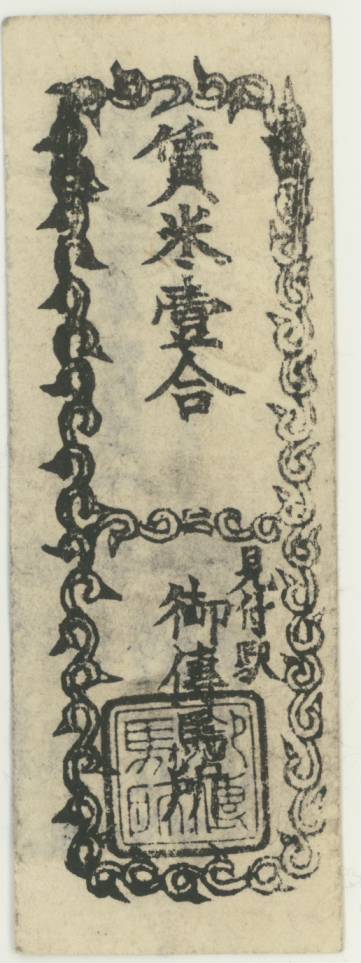 賃米壹合
見付駅
御傳馬所